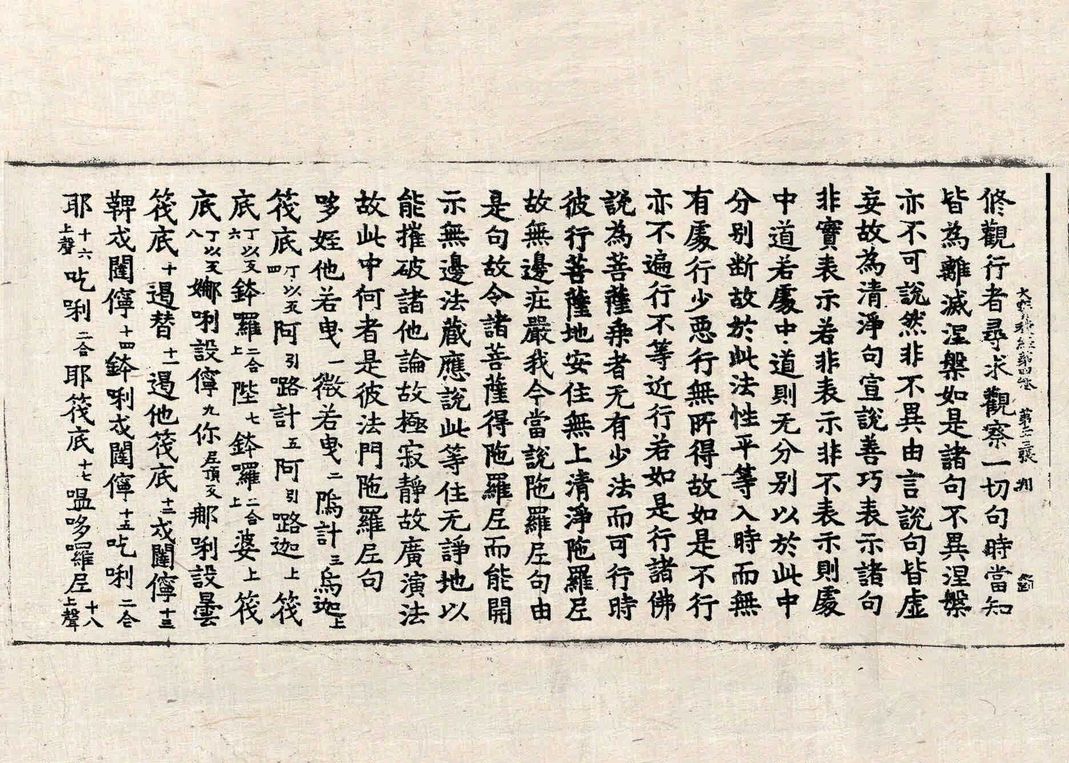 大寶積經第四卷　第二十三張　翔
修觀行者尋求觀察一切句時當知
皆為離滅涅槃如是諸句不異涅槃
亦不可說然非不異由言說句皆虛
妄故為清淨句宣說善巧表示諸句
非實表示若非表示非不表示則處
中道若處中道則无分別以於此中
分別断故於此法性平等入時而無
有處行少惡行無所得故如是不行
亦不遍行不等近行若如是行諸佛
說為菩薩乘者无有少法而可行時
彼行菩薩地安住無上清淨陁羅尼
故無邊莊嚴我今當說陁羅尼句由
是句故令諸菩薩得陁羅尼而能開
示無邊法藏應說此等住无諍地以
能摧破諸他論故極寂靜故廣演法
故此中何者是彼法門陁羅尼句
哆姪他若曳一微若曳二隖計三烏迦上
筏底丁以反四阿引路計五阿引路迦上筏
底丁以反六鉢羅二合上陛七鉢囉二合上婆上筏
底丁以反八娜唎設儜九你尼頂反那唎設曇
筏底十遏替十一遏他筏底十二戍闥儜十三
鞞戍闥儜十四鉢唎戍闥儜十五吃唎二合
耶上聲十六吃唎二合耶筏底十七嗢哆囉尼上聲十八